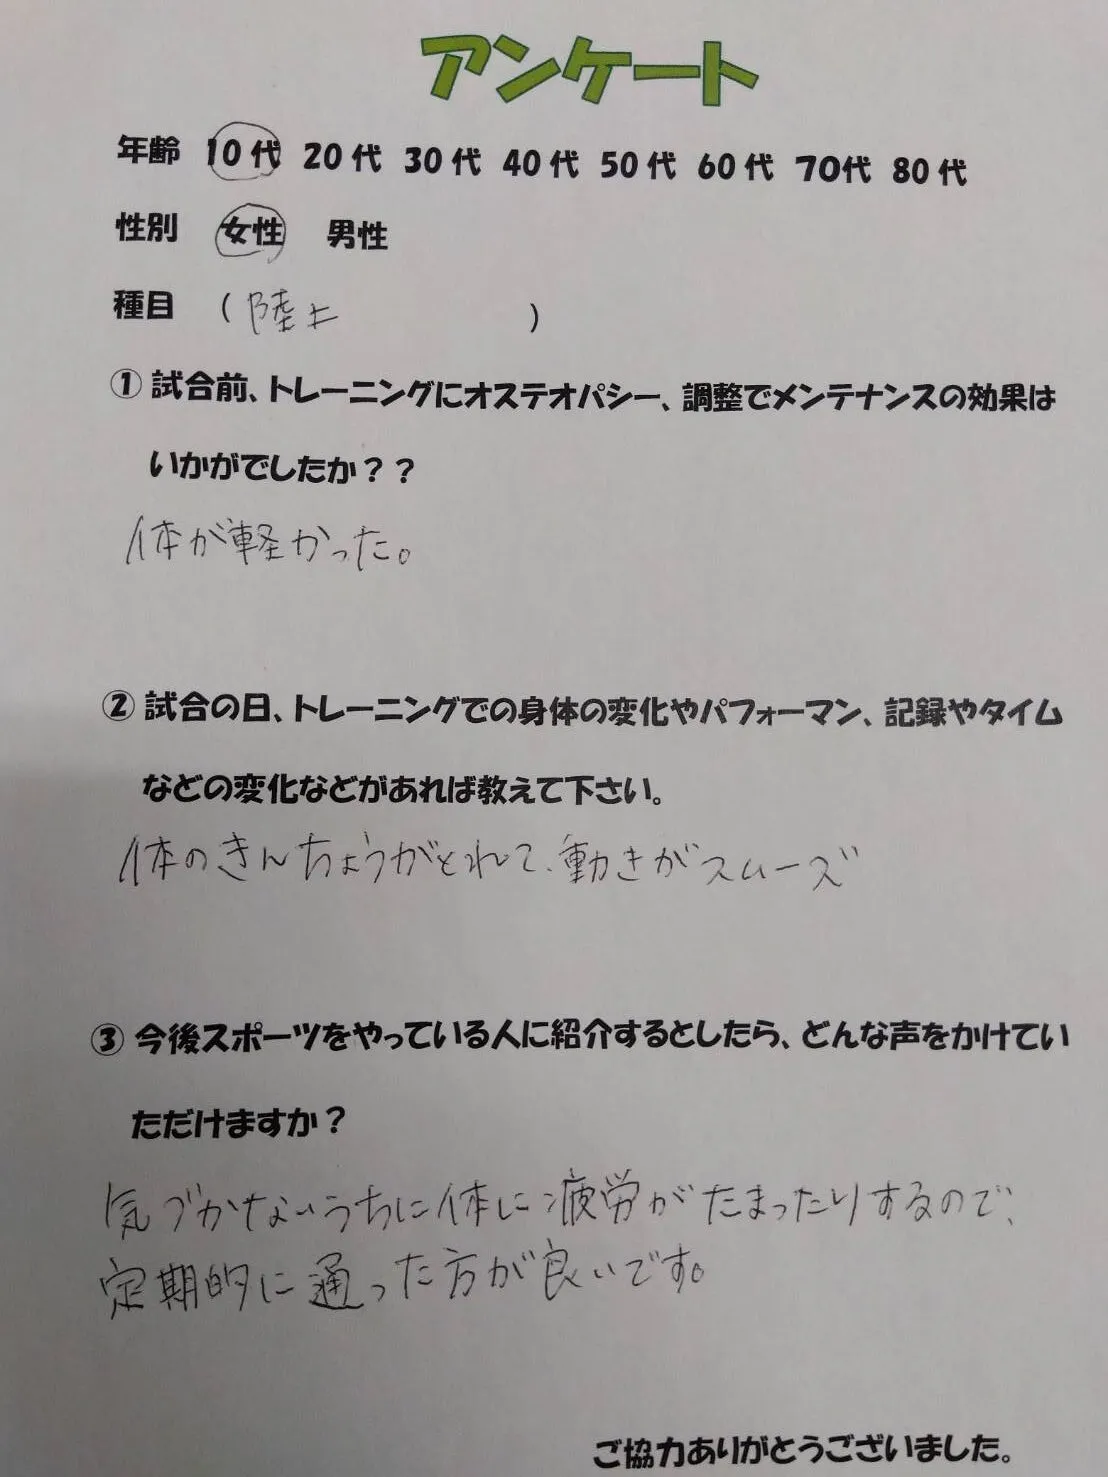 アンケート
年齢 10代 20代 30代 40代 50代 60代 70代 80代
性別 女性 男性
種目 (陸上 )
① 試合前、トレーニングにオステオパシー、調整でメンテナンスの効果は
いかがでしたか？？
体が軽かった。
② 試合の日、トレーニングでの身体の変化やパフォーマン、記録やタイム
などの変化などがあれば教えて下さい。
体のきんちょうがとれて、動きがスムーズ
③ 今後スポーツをやっている人に紹介するとしたら、どんな声をかけてい
ただけますか？
気づかないうちに体に疲労がたまったりするので、
定期的に通った方が良いです。
ご協力ありがとうございました。